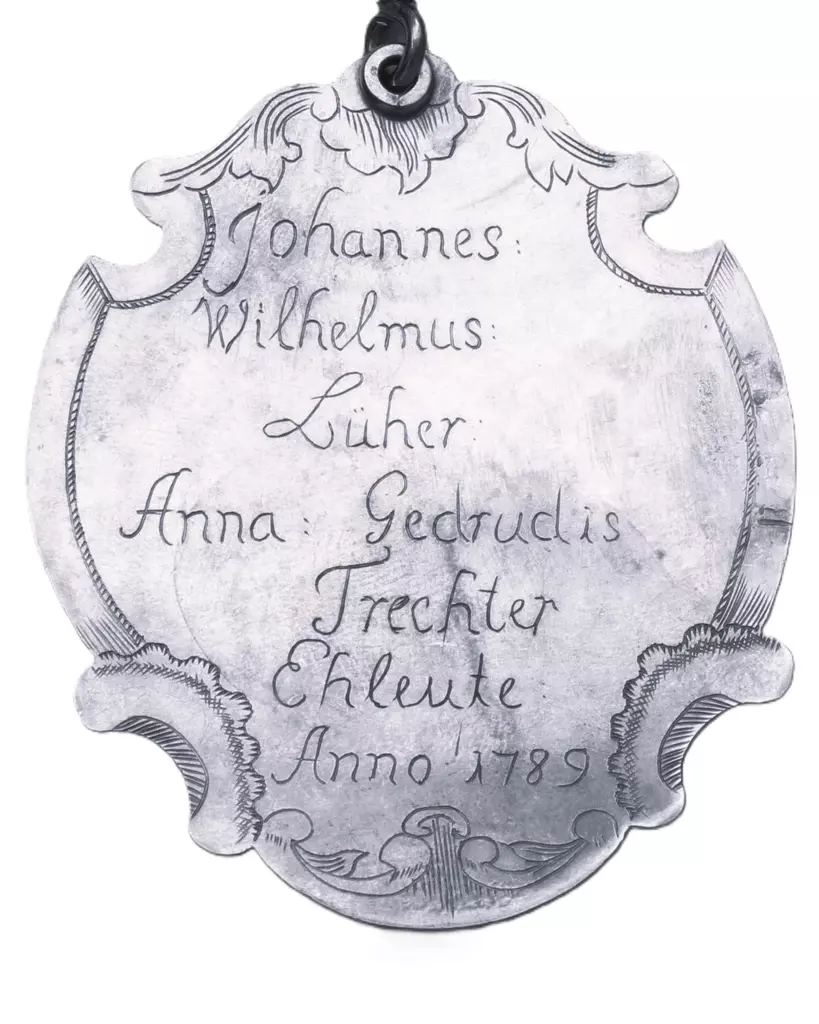 Johannes:
Wilhelmus:
Lüher:
Anna: Gedrudis
Trechter
Ehleute
Anno 1789